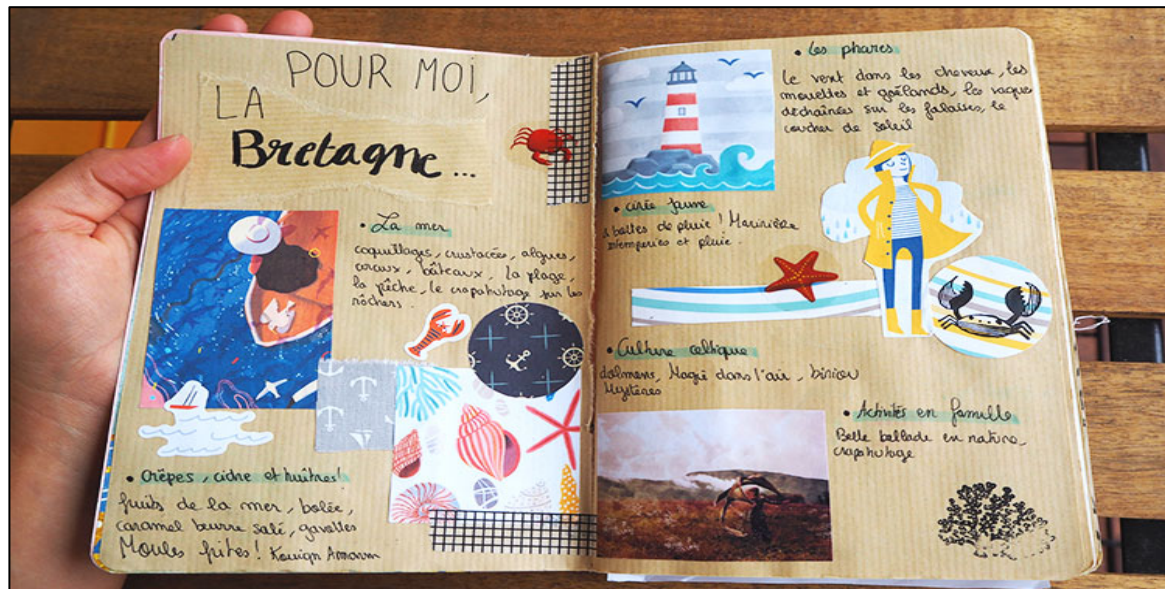 POUR MOI,
LA
Bretagne...
• La mer
coquillages, crustacées, algues,
coraux, bâteaux, la plage,
la pêche, le crapahutage sur les
rôchers.
• Crêpes, cidre et huîtres!
fruits de la mer, bolée,
caramel beurre salé, gavottes
Moules frites! Kouign Amann
• Les phares
Le vent dans les cheveux, les
mouettes et goêlands, les vagues
déchaînées sur les falaises, le
coucher de soleil
• cirée jaune
& bottes de pluie! Marinière
intemperies et pluie.
• Culture celtique
dolmens, Magie dans l'air, biniou
Mystères
• Activités en famille
Belle ballade en nature,
crapahutage